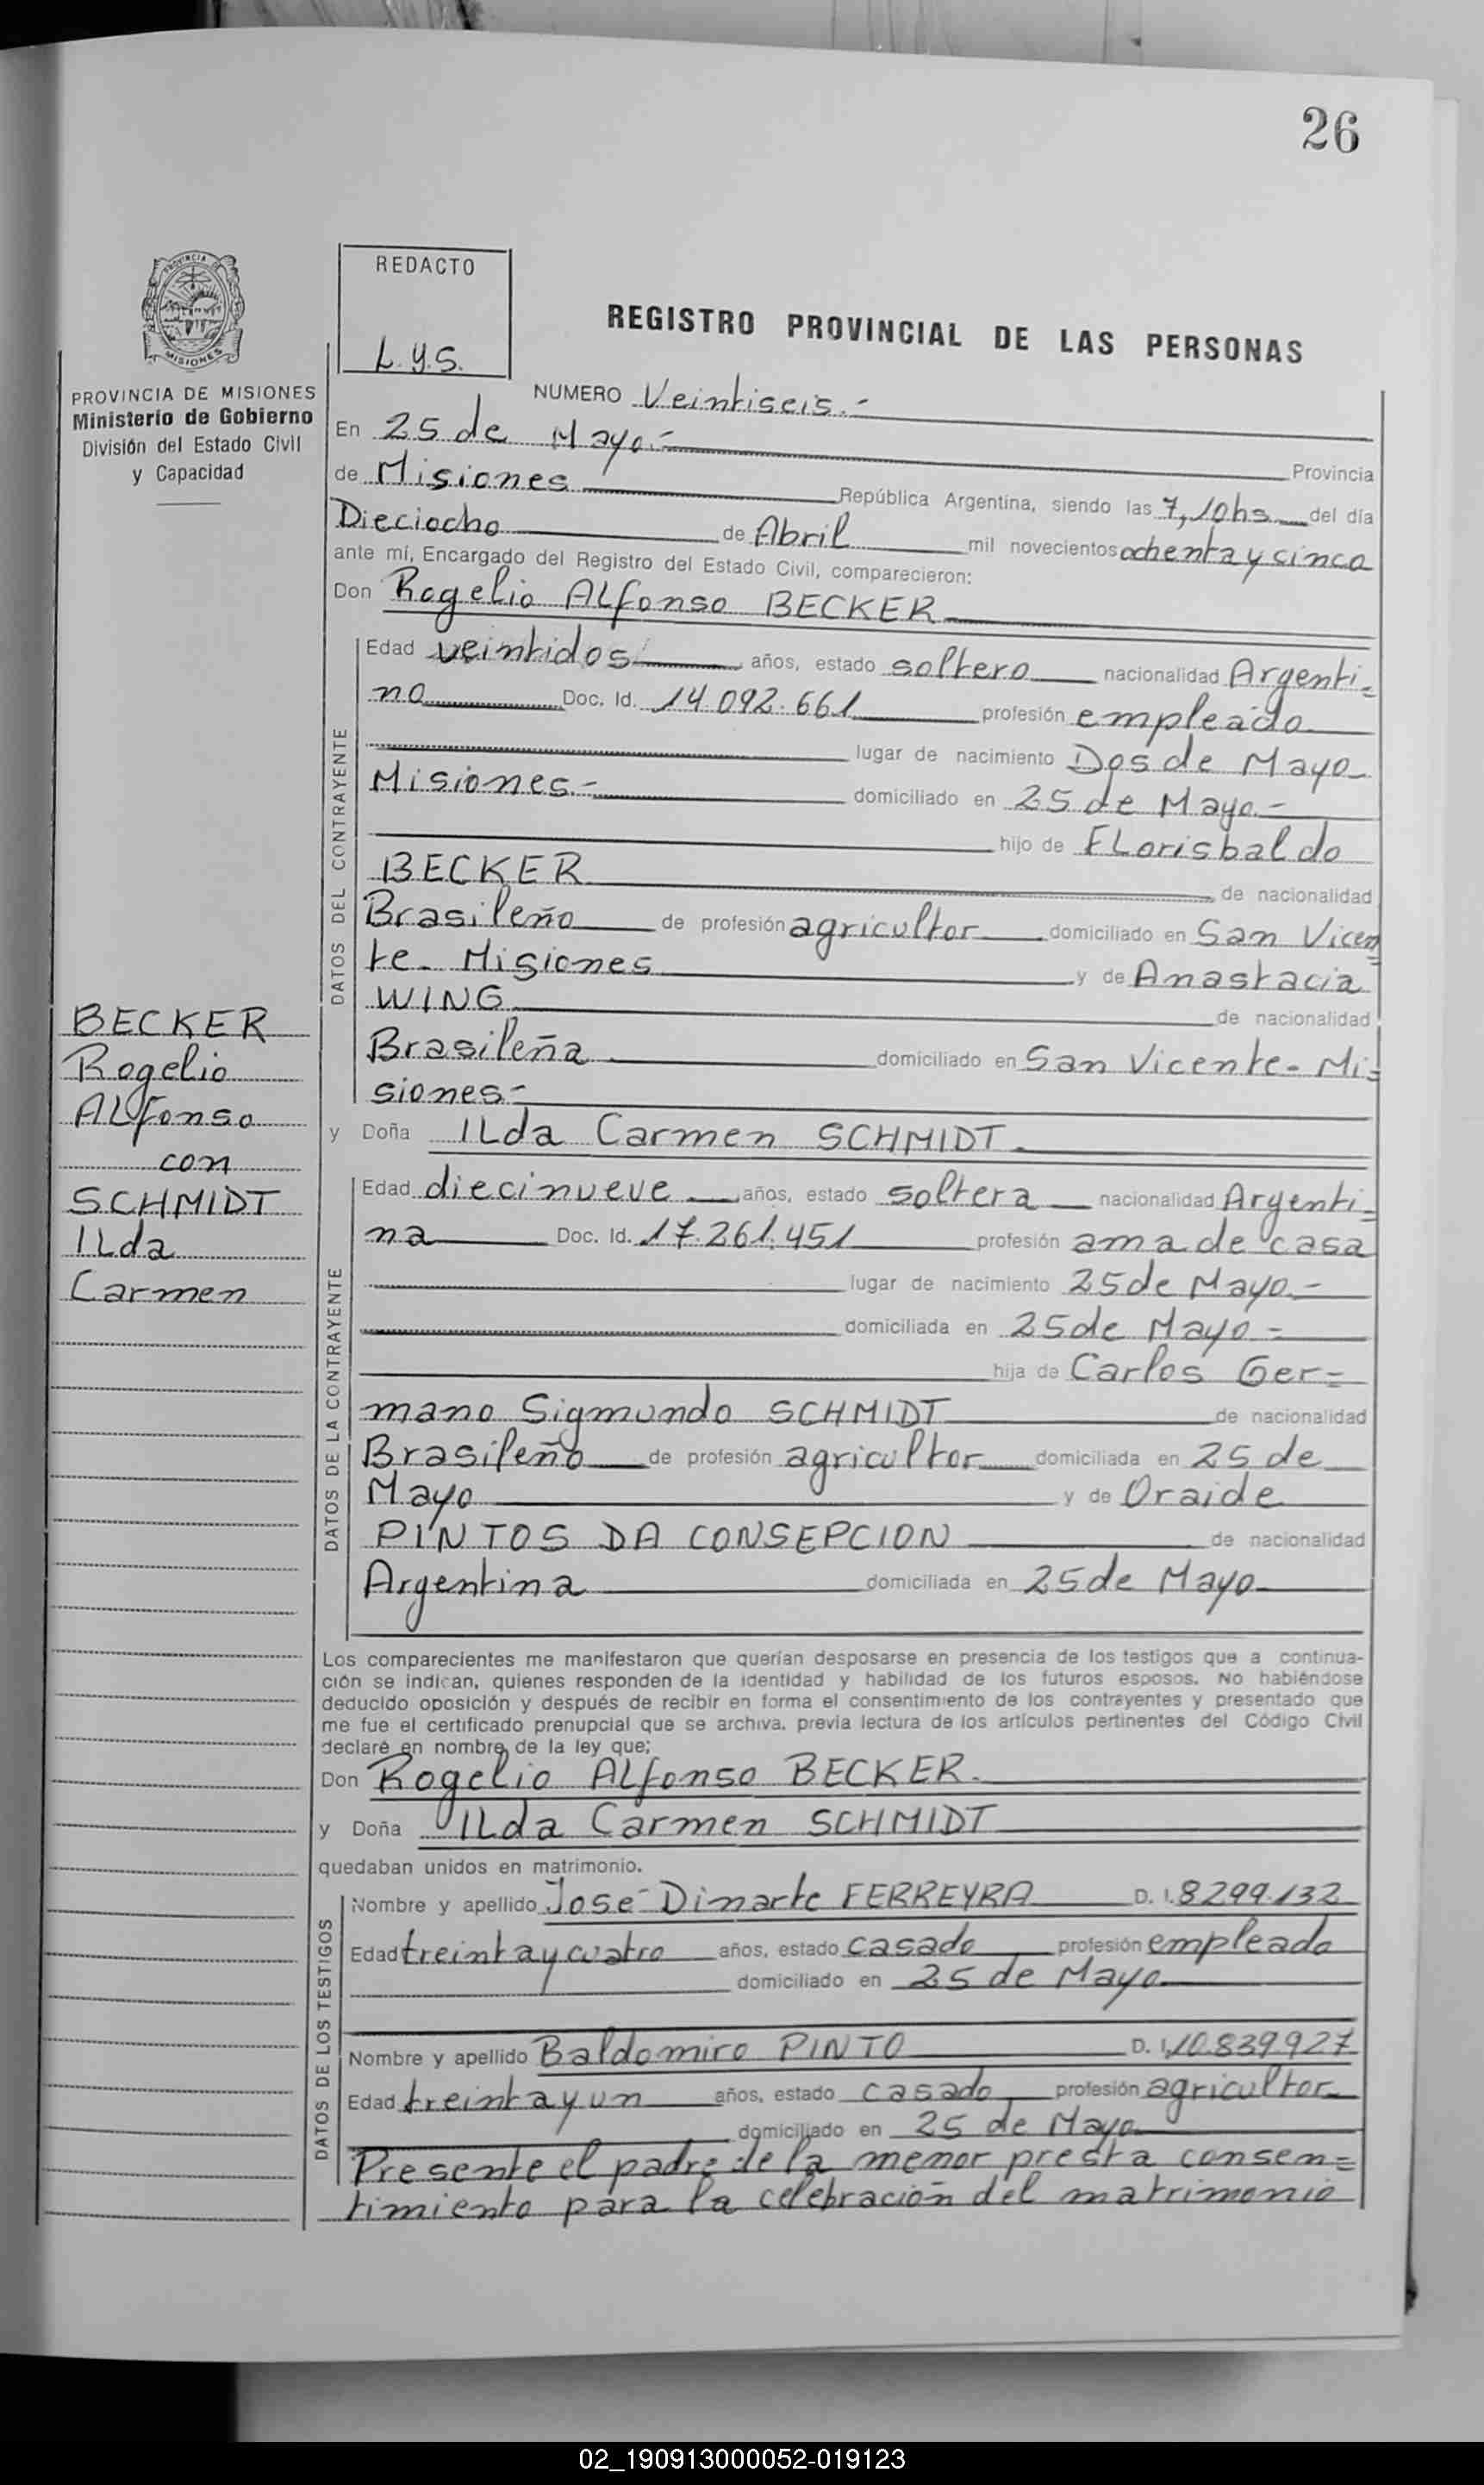 26
REDACTO
L.y.S.
REGISTRO PROVINCIAL DE LAS PERSONAS
PROVINCIA DE MISIONES
Ministerio de Gobierno
División del Estado Civil
y Capacidad
NUMERO Veintiseis.-
En 25 de Mayo.-
Provincia
de Misiones República Argentina, siendo las 7,10hs del día
Dieciocho de Abril mil novecientos ochenta y cinco
ante mí, Encargado del Registro del Estado Civil, comparecieron:
Don Rogelio ALfonso BECKER
DATOS DEL CONTRAYENTE
Edad veintidos años, estado soltero nacionalidad Argenti=
no Doc. Id. 14.092.661 profesión empleado
lugar de nacimiento Dos de Mayo
Misiones.- domiciliado en 25 de Mayo.-
hijo de FLorisbaldo
BECKER de nacionalidad
Brasileño de profesión agricultor domiciliado en San Vicen=
te- Misiones y de Anastacia
WING de nacionalidad
Brasileña domiciliado en San Vicente- Mi=
siones.-
y Doña ILda Carmen SCHMIDT
BECKER
Rogelio
ALfonso
con
SCHMIDT
ILda
Carmen
DATOS DE LA CONTRAYENTE
Edad diecinueve años, estado soltera nacionalidad Argenti=
na Doc. Id. 17.261.451 profesión ama de casa
lugar de nacimiento 25 de Mayo.-
domiciliada en 25 de Mayo-
hija de Carlos Ger=
mano Sigmundo SCHMIDT de nacionalidad
Brasileño de profesión agricultor domiciliada en 25 de
Mayo y de Oraide
PINTOS DA CONSEPCION de nacionalidad
Argentina domiciliada en 25 de Mayo
Los comparecientes me manifestaron que querían desposarse en presencia de los testigos que a continua-
ción se indican, quienes responden de la identidad y habilidad de los futuros esposos. No habiéndose
deducido oposición y después de recibir en forma el consentimiento de los contrayentes y presentado que
me fue el certificado prenupcial que se archiva, previa lectura de los artículos pertinentes del Código Civil
declaré en nombre de la ley que;
Don Rogelio ALfonso BECKER.
y Doña ILda Carmen SCHMIDT
quedaban unidos en matrimonio.
DATOS DE LOS TESTIGOS
Nombre y apellido José Dinarte FERREYRA D. I. 8299.132
Edad treinta y cuatro años, estado casado profesión empleado
domiciliado en 25 de Mayo
Nombre y apellido Baldomiro PINTO D. I. 10.839.927
Edad treinta y un años, estado casado profesión agricultor
domiciliado en 25 de Mayo
Presente el padre de la menor presta consen=
timiento para la celebración del matrimonio
02_190913000052-019123